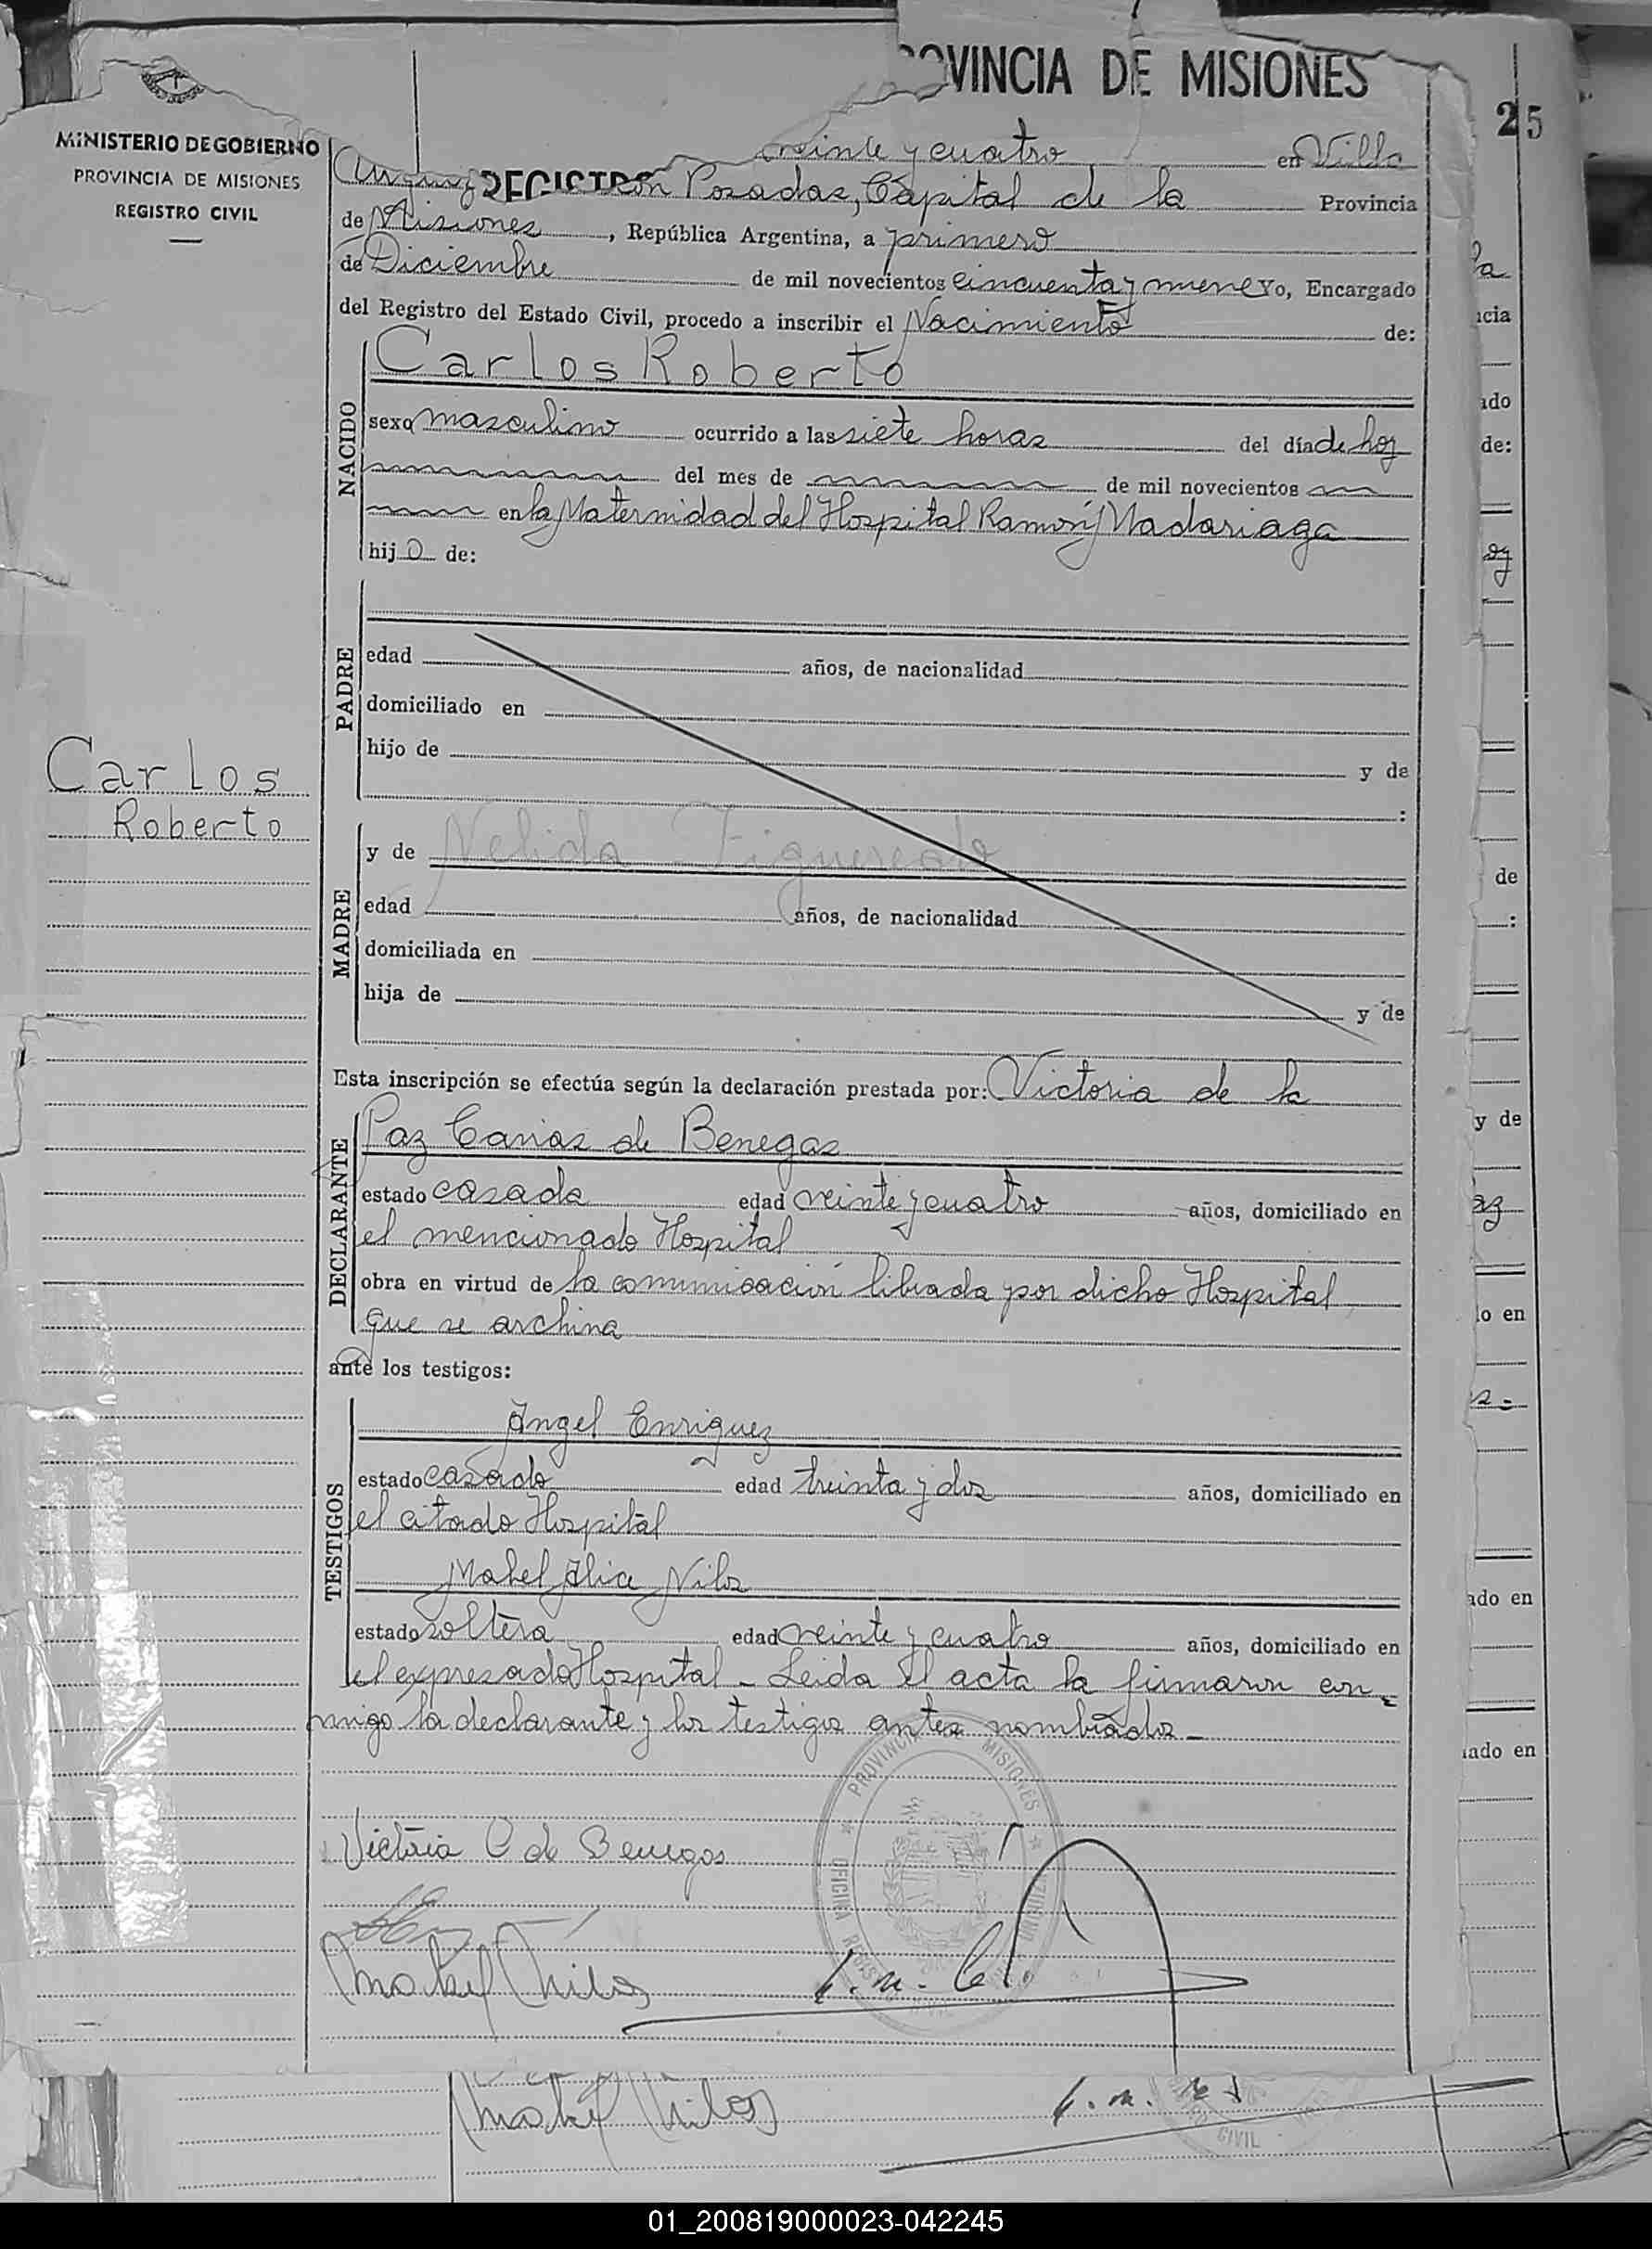 OVINCIA DE MISIONES
25
MINISTERIO DE GOBIERNO
PROVINCIA DE MISIONES
REGISTRO CIVIL
veinte y cuatro en Villa
Posadas, Capital de la Provincia
de Misiones, República Argentina, a primero
de Diciembre de mil novecientos cincuenta y nueve Yo, Encargado
del Registro del Estado Civil, procedo a inscribir el Nacimiento de:
NACIDO
Carlos Roberto
sexo masculino ocurrido a las siete horas del día de hoy
del mes de de mil novecientos
en la Maternidad del Hospital Ramón Madariaga
hijo de:
PADRE
edad años, de nacionalidad
domiciliado en
hijo de y de
:
Carlos
Roberto
MADRE
y de Nelida Figueredo
edad años, de nacionalidad
domiciliada en
hija de y de
Esta inscripción se efectúa según la declaración prestada por: Victoria de la
DECLARANTE
Paz Carias de Benegas
estado casada edad veinte y cuatro años, domiciliado en
el mencionado Hospital
obra en virtud de la comunicación librada por dicho Hospital,
que se archiva
ante los testigos:
TESTIGOS
Angel Enriquez
estado casado edad treinta y dos años, domiciliado en
el citado Hospital
Mabel Alice Nilos
estado soltera edad veinte y cuatro años, domiciliado en
el expresado Hospital - Leida el acta la firmaron con-
migo la declarante y los testigos antes nombrados -
PROVINCIA DE MISIONES
OFICINA REGISTRO CIVIL
Victoria C de Benegas
Mabel Nilos
Mabel Nilos
CIVIL
cia
ado
de:
de
:
y de
o en
ado en
ado en
01_200819000023-042245